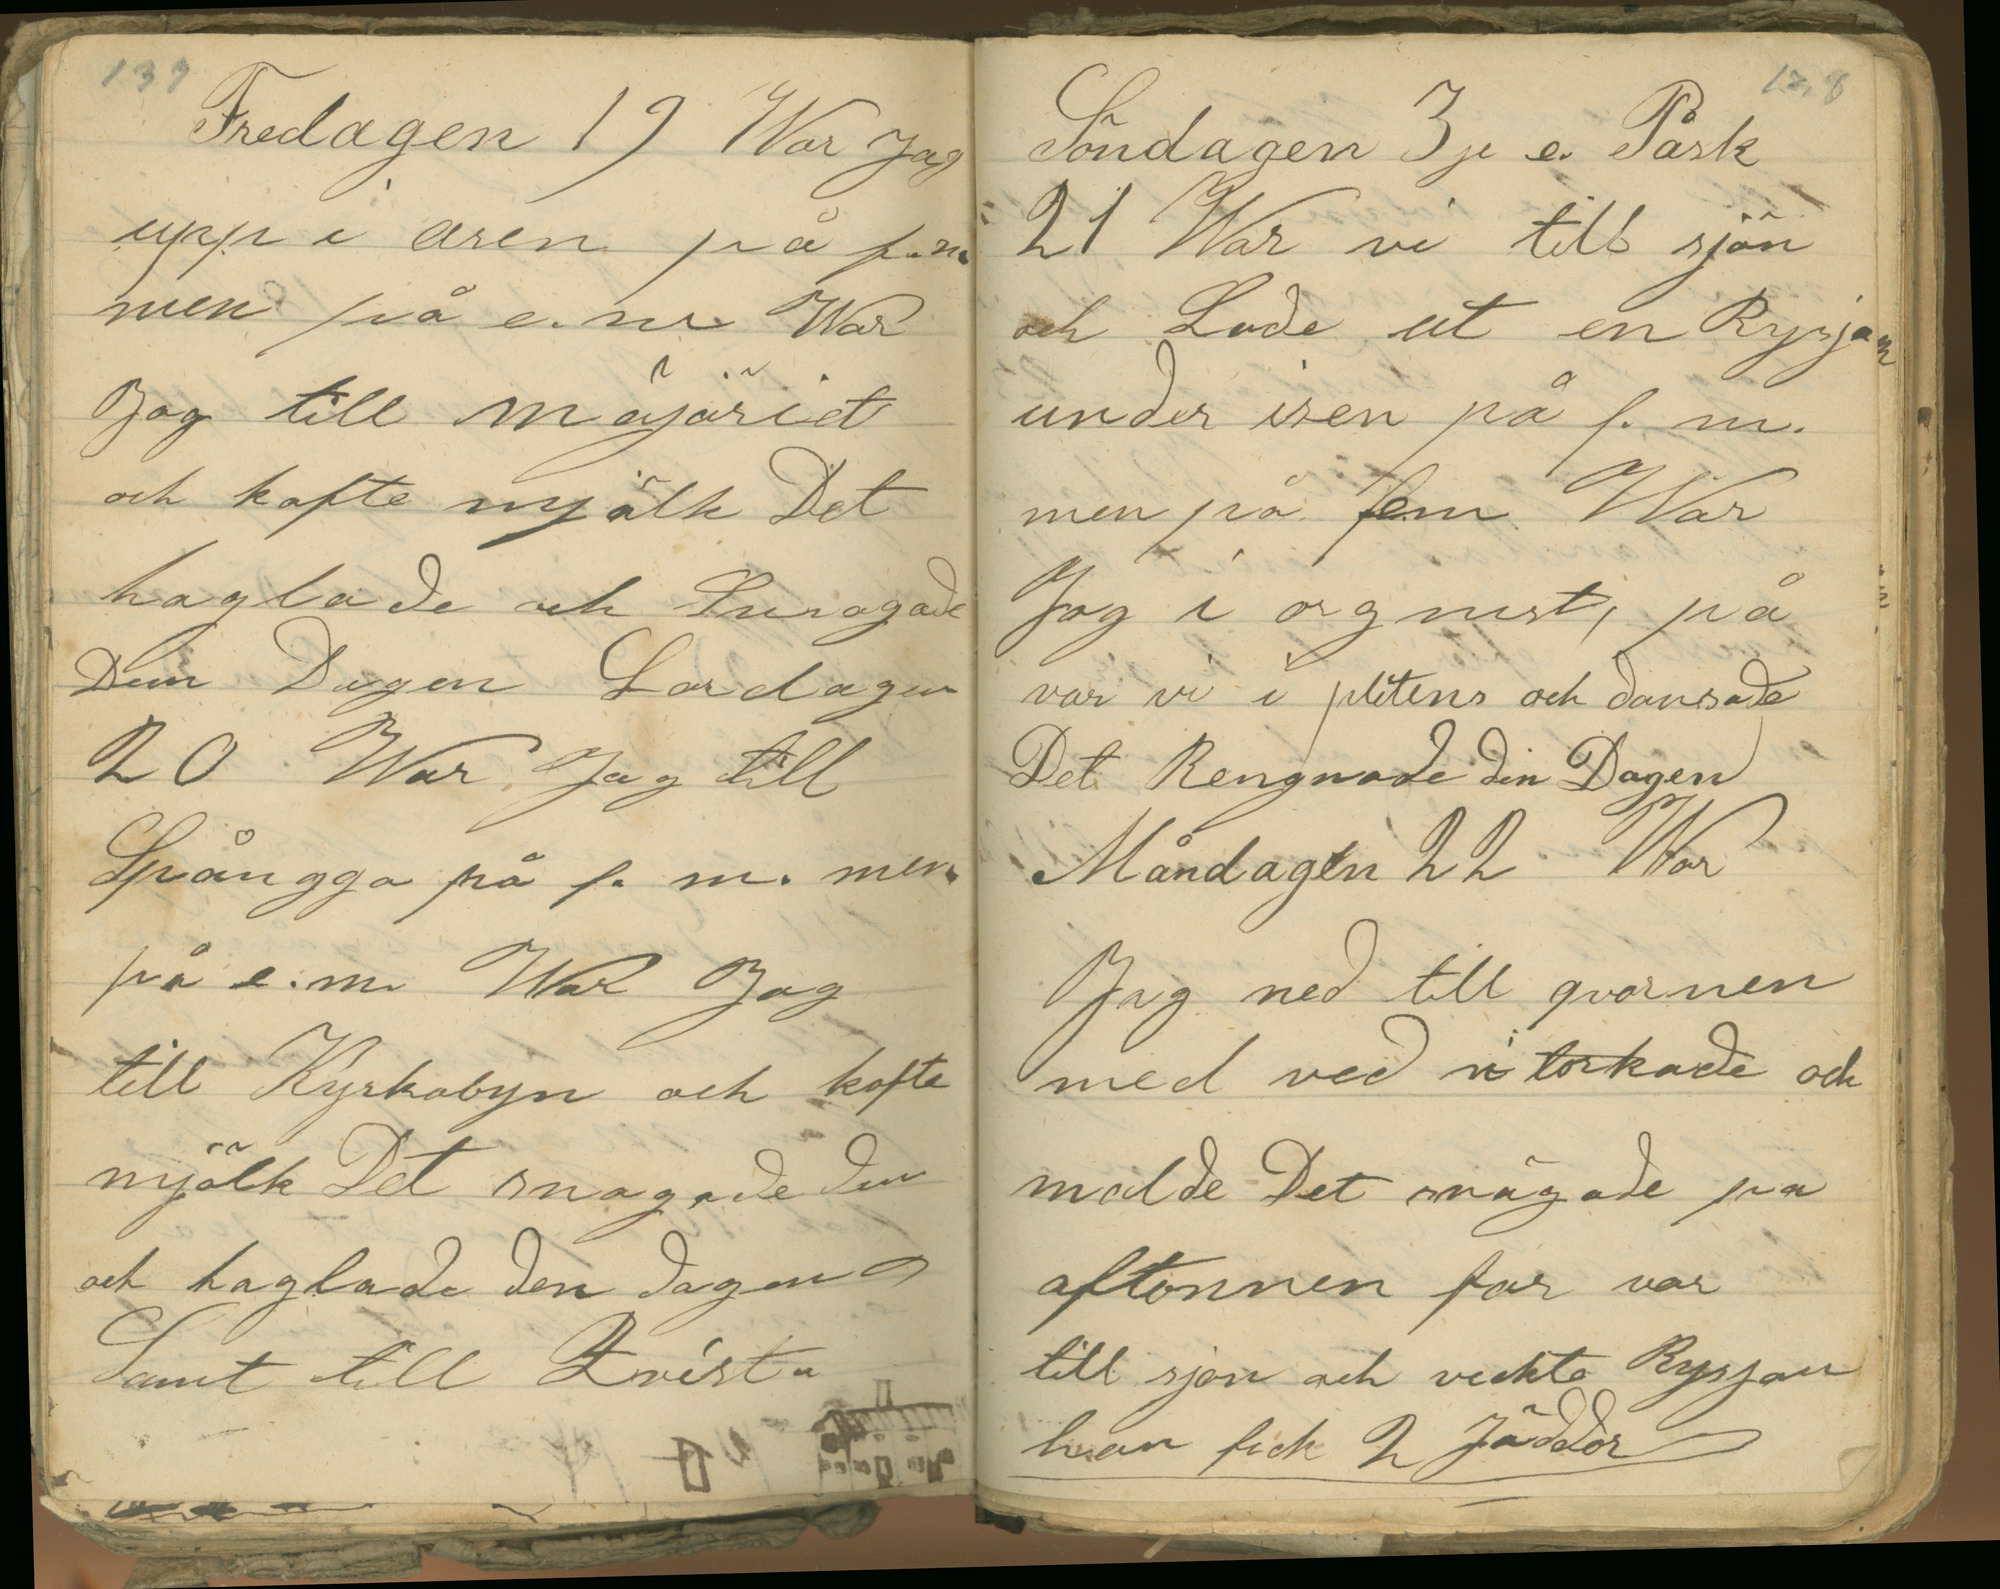 137
Fredagen 19 War Jag
upp i aren på f.m.
men på e.m War
Jag till mäjäriet
och kofte mjälk Det
haglade och Snogade
Dem Dagen Lordagen
20 War Jag till
Spångga på f. m. men
på e.m. War Jag
till Kyrkobyn och kofte
mjölk Det snogade den
och haglade den dagen
Samt till Qvista
138
Söndagen 3je e. Påsk
21 War vi till sjön
och Lade ut en Rysjan
under isen på f. m.
men på em War
Jag i orgnist, på
var vi i plitens och dansade
Det Rengnade din Dagen
Måndagen 22 War
Jag ned till qvarnen
med ved vi torkade och
malde Det snögade pa
aftonnen far var
till sjon och veckte Rysjan
han fick 2 Jäddor